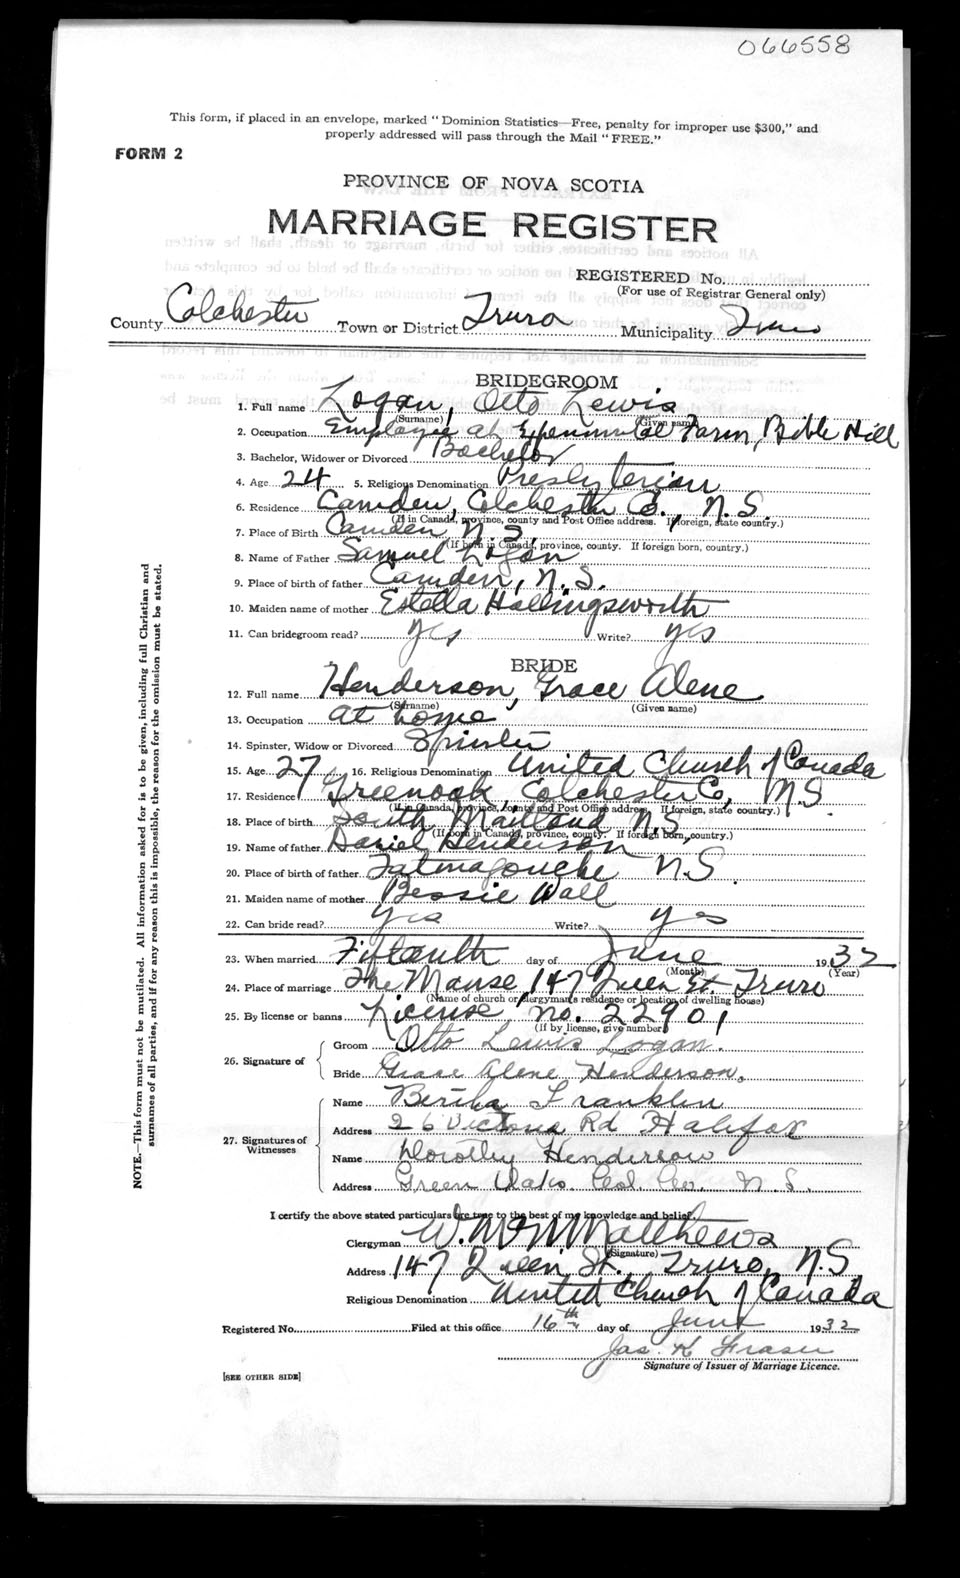 066558
This form, if placed in an envelope, marked " Dominion Statistics—Free, penalty for improper use $300," and
properly addressed will pass through the Mail " FREE."
FORM 2
PROVINCE OF NOVA SCOTIA
MARRIAGE REGISTER
REGISTERED No.
(For use of Registrar General only)
County Colchester Town or District Truro Municipality Truro
BRIDEGROOM
1. Full name Logan, Otto Lewis
(Surname) (Given name)
2. Occupation Employee at Experimental Farm, Bible Hill
3. Bachelor, Widower or Divorced Bachelor
4. Age 24 5. Religious Denomination Presbyterian
6. Residence Camden, Colchester Co., N.S.
(If in Canada, province, county and Post Office address. If foreign, state country.)
7. Place of Birth Camden N.S.
(If born in Canada, province, county. If foreign born, country.)
8. Name of Father Samuel Logan
9. Place of birth of father Camden, N.S.
10. Maiden name of mother Estella Hollingsworth
11. Can bridegroom read? yes Write? yes
BRIDE
12. Full name Henderson, Grace Alene
(Surname) (Given name)
13. Occupation At home
14. Spinster, Widow or Divorced Spinster
15. Age 27 16. Religious Denomination United Church of Canada
17. Residence Greenoak, Colchester Co, N.S
(If in Canada, province, county and Post Office address. If foreign, state country.)
18. Place of birth South Maitland N.S.
(If born in Canada, province, county. If foreign born, country.)
19. Name of father Daniel Henderson
20. Place of birth of father Tatmagouche N.S.
21. Maiden name of mother Bessie Wall
22. Can bride read? Yes Write? yes
23. When married Fifteenth day of June 1932
(Month) (Year)
24. Place of marriage The Manse 147 Queen St. Truro
(Name of church or clergyman's residence or location of dwelling house)
25. By license or banns License, no. 22901
(If by license, give number)
26. Signature of
Groom Otto Lewis Logan.
Bride Grace Alene Henderson.
27. Signatures of Witnesses
Name Bertha Franklin
Address 26 Victoria Rd Halifax
Name Dorothy Henderson
Address Green Oaks. Col. Co. N.S.
I certify the above stated particulars are true to the best of my knowledge and belief.
Clergyman W. McN Matthews
(Signature)
Address 147 Queen St., Truro, N.S
Religious Denomination United Church of Canada
Registered No. Filed at this office 16th day of June 1932
Jas. K Fraser
Signature of Issuer of Marriage Licence.
[SEE OTHER SIDE]
NOTE.—This form must not be mutilated. All information asked for is to be given, including full Christian and
surnames of all parties, and if for any reason this is impossible, the reason for the omission must be stated.